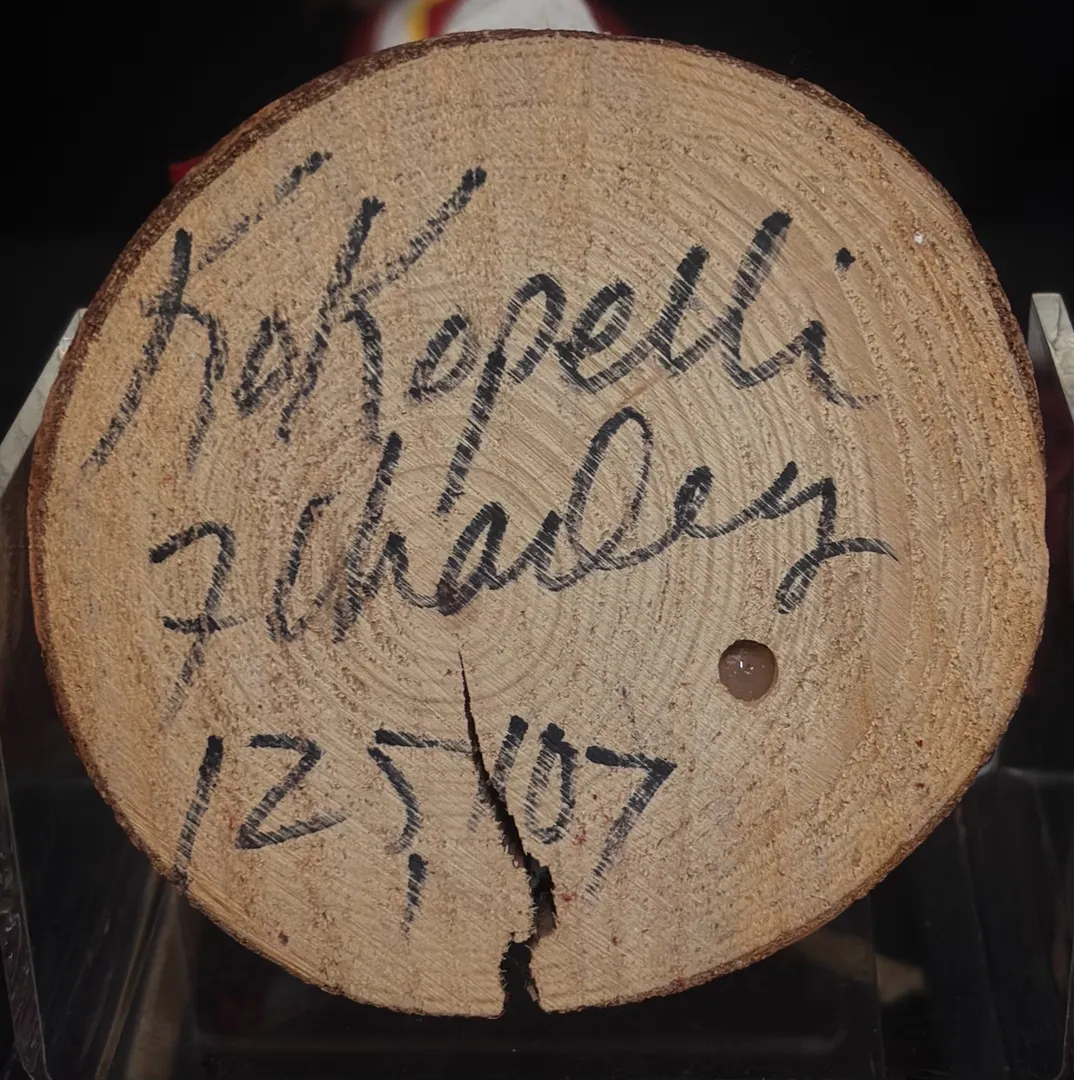 KoKopelli
F Charley
125,107